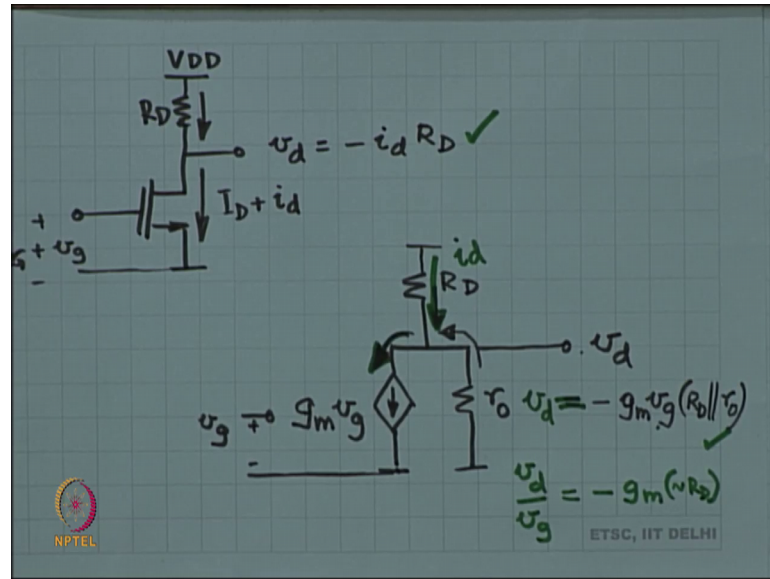 VDD
RD
v_d = - i_d R_D ✓
I_D + i_d
+
G + v_g
-
id
R_D
v_d
v_g + g_m v_g
-
r_o v_d = - g_m v_g (R_D || r_o)
✓
v_d / v_g = - g_m (~R_D)
NPTEL
ETSC, IIT DELHI